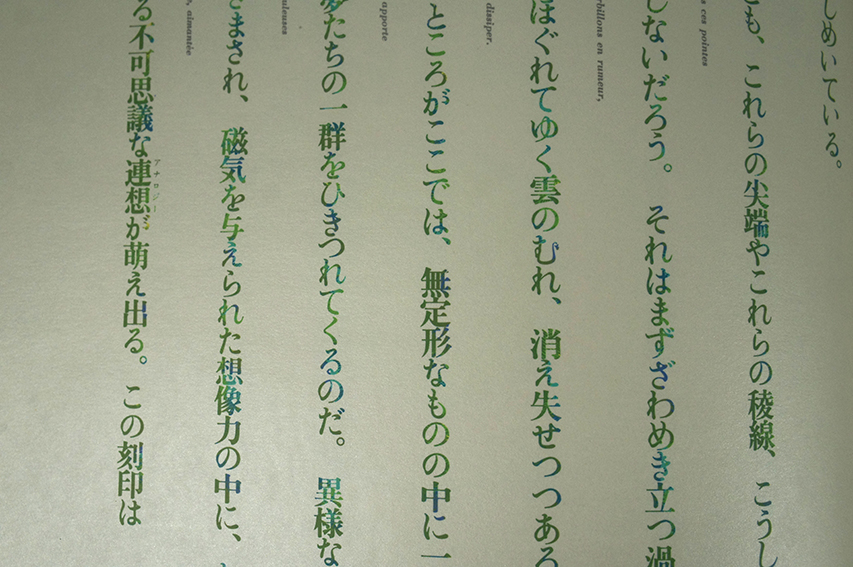 しめいている。
も、これらの尖端やこれらの稜線、こうし
ces pointes
しないだろう。 それはまずざわめき立つ渦
billons en rumeur,
ほぐれてゆく雲のむれ、消え失せつつある
dissiper.
ところがここでは、無定形なものの中に一
apporte
たちの一群をひきつれてくるのだ。 異様な
uleuses
まされ、磁気を与えられた想像力の中に、
aimantée
アナロジー
る不可思議な連想が萌え出る。 この刻印は